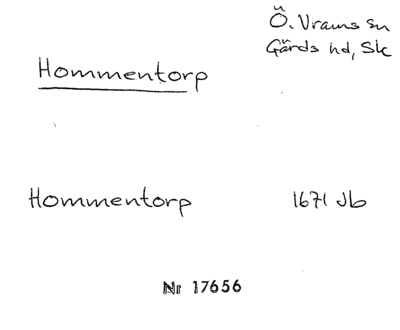 Ö. Vrams sn
Gärds hd, Sk
Hommentorp
Hommentorp 1671 Jb
Nr 17656